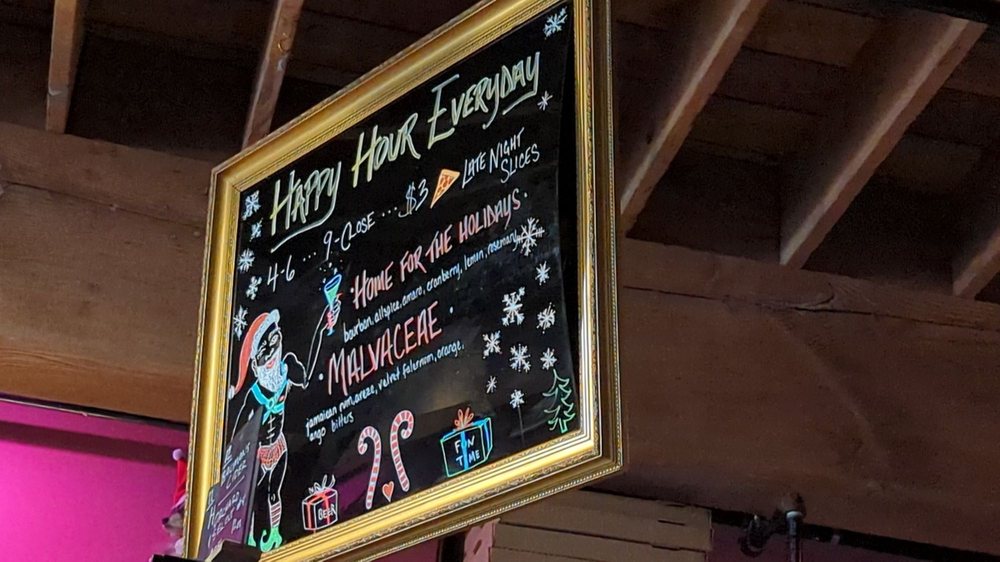 HAPPY HOUR EVERYDAY
4-6 .... 9-CLOSE .... $3 LATE NIGHT SLICES
· HOME FOR THE HOLIDAYS ·
bourbon, allspice, amaro, cranberry, lemon, rosemary
· MALVACEAE ·
jamaican rum, velvet falernum, orange,
ango bitters
BEER
FUN
TIME